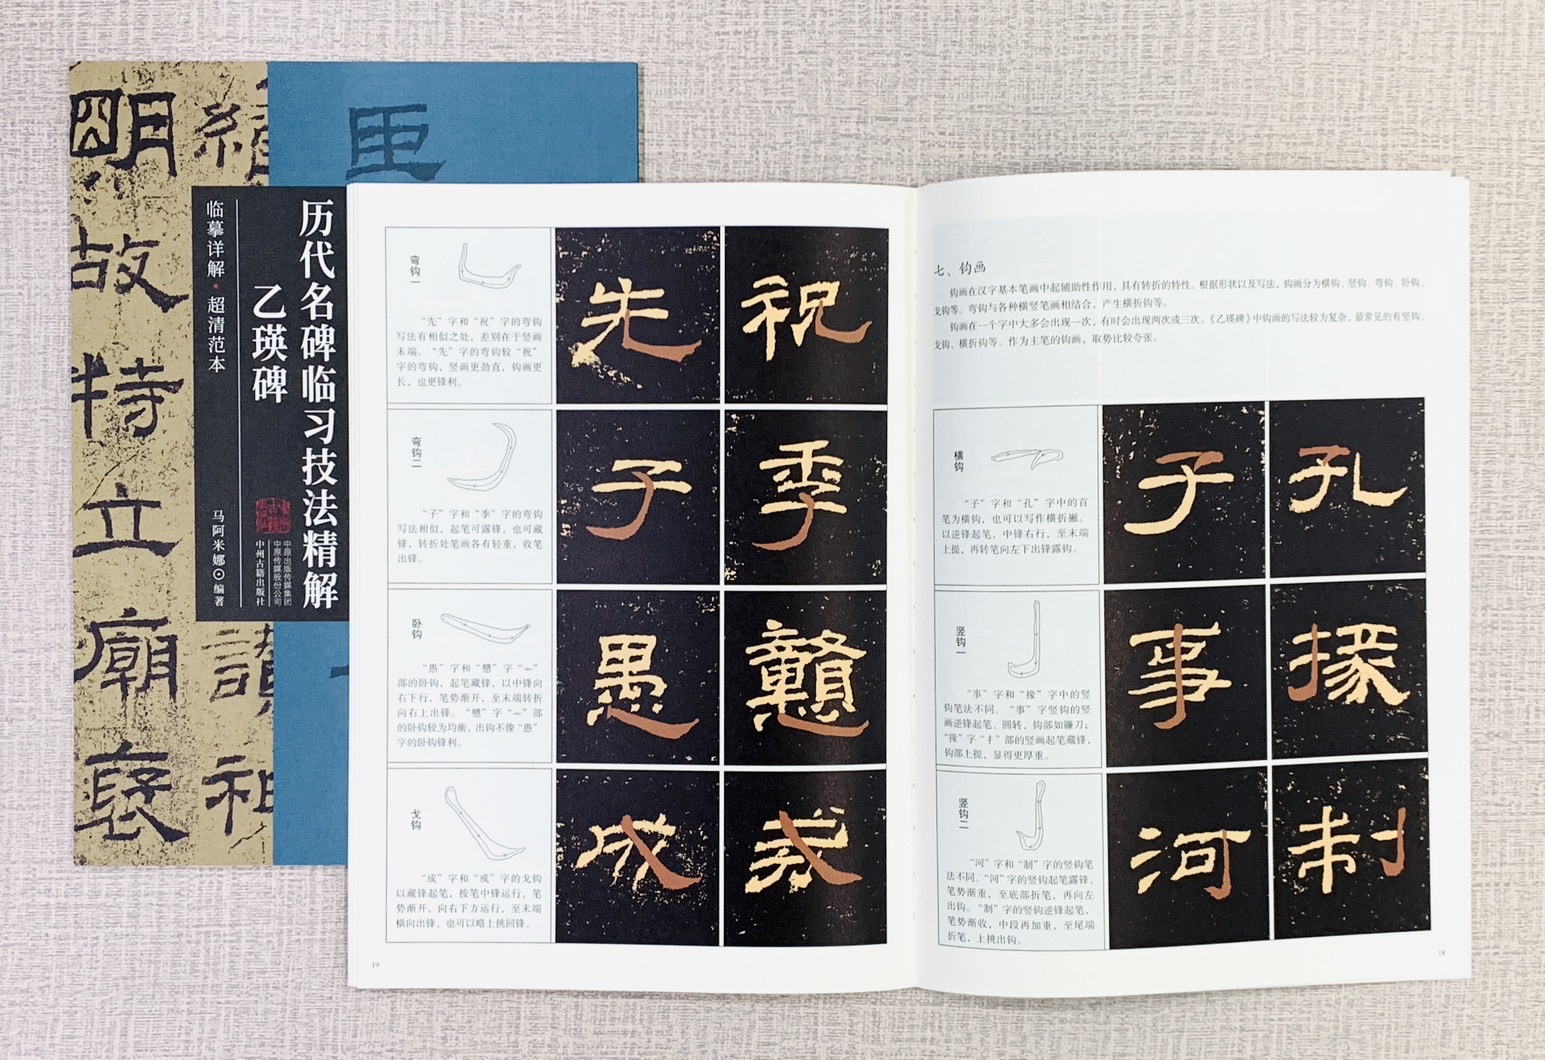 明
故
特
立
廟
褒
讃
祖
历代名碑临习技法精解
乙瑛碑
临摹详解·超清范本
马阿米娜⊙编著
中原出版传媒集团
中原传媒股份公司
中州古籍出版社
七、钩画
钩画在汉字基本笔画中起辅助性作用，具有转折的特性。根据形状以及写法，钩画分为横钩、竖钩、弯钩、卧钩、
戈钩等。弯钩与各种横竖笔画相结合，产生横折钩等。
钩画在一个字中大多会出现一次，有时会出现两次或三次。《乙瑛碑》中钩画的写法较为复杂，最常见的有竖钩、
戈钩、横折钩等。作为主笔的钩画，取势比较夸张。
横钩
“子”字和“孔”字中的首
笔为横钩，也可以写作横折撇。
以逆锋起笔，中锋右行，至末端
上提，再转笔向左下出锋露钩。
子
孔
竖钩一
“事”字和“掾”字中的竖
钩笔法不同。“事”字竖钩的竖
画逆锋起笔、圆转，钩部如镰刀；
“掾”字“扌”部的竖画起笔藏锋，
钩部上提，显得更厚重。
事
掾
竖钩二
“河”字和“制”字的竖钩笔
法不同。“河”字的竖钩起笔露锋，
笔势渐重，至底部折笔，再向左
出钩。“制”字的竖钩逆锋起笔，
笔势渐收，中段再加重，至尾端
折笔，上挑出钩。
河
制
18
弯钩一
“先”字和“祝”字的弯钩
写法有相似之处，差别在于竖画
末端。“先”字的弯钩较“祝”
字的弯钩，竖画更劲直，钩画更
长，也更锋利。
先
祝
弯钩二
“子”字和“季”字的弯钩
写法相似，起笔可露锋，也可藏
锋，转折处笔画各有轻重，收笔
出锋。
子
季
卧钩
“愚”字和“戆”字“心”
部的卧钩，起笔藏锋，以中锋向
右下行，笔势渐开，至末端转折
向右上出锋。“戆”字“心”部
的卧钩较为均衡，出钩不像“愚”
字的卧钩锋利。
愚
戆
戈钩
“成”字和“戒”字的戈钩
以藏锋起笔，按笔中锋运行，笔
势渐开，向右下方运行，至末端
横向出锋。也可以略上挑回锋。
成
戒
19